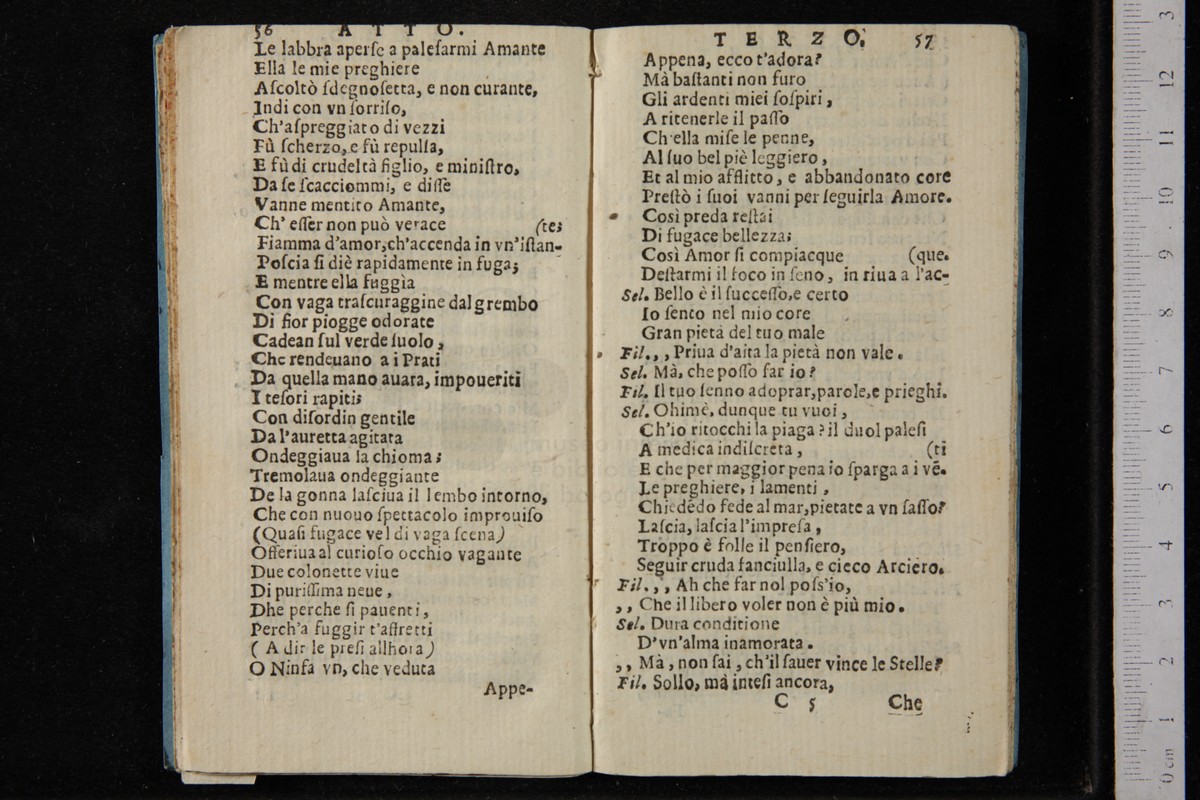 56 ATTO.
Le labbra aperſe a paleſarmi Amante
Ella le mie preghiere
Aſcoltò ſdegnoſetta, e non curante,
Indi con vn ſorriſo,
Ch'aſpreggiato di vezzi
Fù ſcherzo, e fù repulſa,
E fù di crudeltà figlio, e miniſtro,
Da ſe ſcacciommi, e diſſe
Vanne mentito Amante,
Ch' eſſer non può verace (te;
Fiamma d'amor, ch'accenda in vn'iſtan-
Poſcia ſi diè rapidamente in fuga;
E mentre ella fuggia
Con vaga traſcuraggine dal grembo
Di fior piogge odorate
Cadean ſul verde ſuolo,
Che rendeuano a i Prati
Da quella mano auara, impoueriti
I teſori rapiti;
Con diſordin gentile
Da l'auretta agitata
Ondeggiaua la chioma;
Tremolaua ondeggiante
De la gonna laſciua il lembo intorno,
Che con nuouo ſpettacolo improuiſo
(Quaſi fugace vel di vaga ſcena)
Offeriua al curioſo occhio vagante
Due colonette viue
Di puriſſima neue,
Dhe perche ſi pauenti,
Perch'a fuggir t'affretti
( A dir le preſi allhora)
O Ninfa vn, che veduta
Appe-
TERZO. 57
Appena, ecco t'adora?
Mà baſtanti non furo
Gli ardenti miei ſoſpiri,
A ritenerle il paſſo
Ch'ella miſe le penne,
Al ſuo bel piè leggiero,
Et al mio afflitto, e abbandonato core
Preſtò i ſuoi vanni per ſeguirla Amore.
Così preda reſtai
Di fugace bellezza;
Così Amor ſi compiacque (que.
Deſtarmi il foco in ſeno, in riua a l'ac-
Sel. Bello è il ſucceſſo, e certo
Io ſento nel mio core
Gran pietà del tuo male
Fil. ,, Priua d'aita la pietà non vale.
Sel. Mà, che poſſo far io?
Fil. Il tuo ſenno adoprar, parole, e prieghi.
Sel. Ohimè, dunque tu vuoi,
Ch'io ritocchi la piaga? il duol paleſi
A medica indiſcreta, (ti
E che per maggior pena io ſparga a i vẽ-
Le preghiere, i lamenti,
Chiedẽdo fede al mar, pietate a vn ſaſſo?
Laſcia, laſcia l'impreſa,
Troppo è folle il penſiero,
Seguir cruda fanciulla, e cieco Arciero.
Fil. ,, Ah che far nol poſs'io,
,, Che il libero voler non è più mio.
Sel. Dura conditione
D'vn'alma inamorata.
,, Mà, non ſai, ch'il ſauer vince le Stelle?
Fil. Sollo, mà inteſi ancora,
C 5 Che